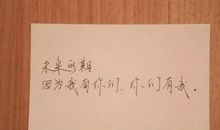 未来可期
因为我有你们，你们有我。